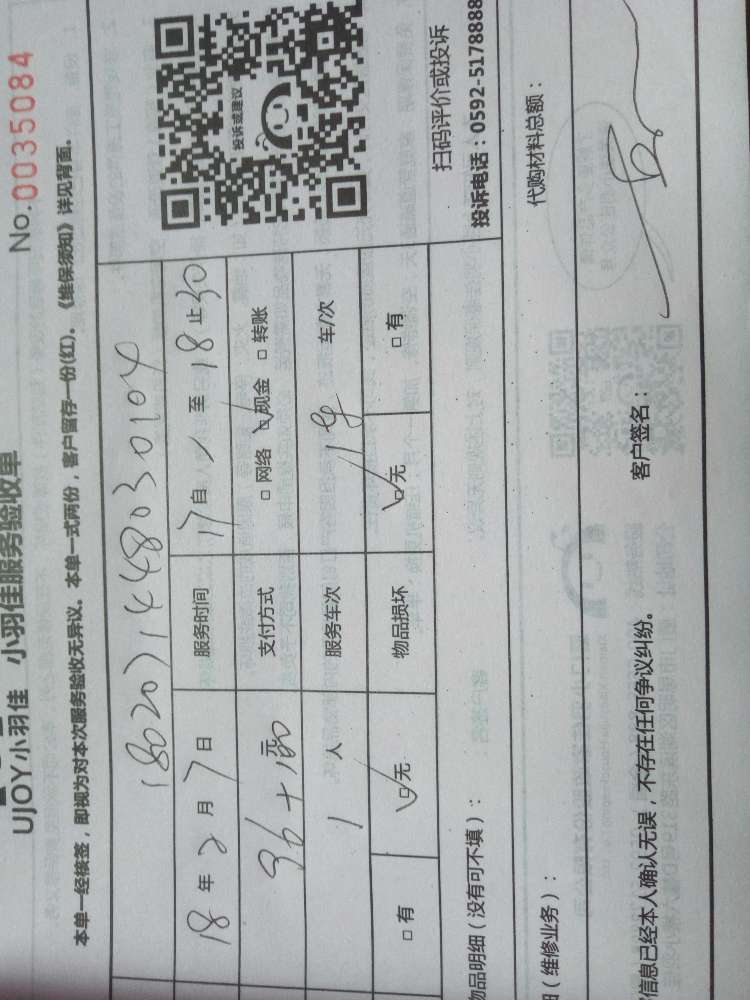 UJOY小羽佳 小羽佳服务验收单
No.0035084
本单一经核签，即视为对本次服务验收无异议。本单一式两份，客户留存一份(红)。《维保须知》详见背面。
18年2月7日 服务时间 17自 至18止30
96+100元 支付方式 □网络 □现金 □转账
1人 服务车次 车/次
□有 □无 物品损坏 □无 □有
投诉或建议
扫码评价或投诉
投诉电话：0592-5178888
物品明细（没有可不填）：
（维修业务）： 代购材料总额：
信息已经本人确认无误，不存在任何争议纠纷。 客户签名：